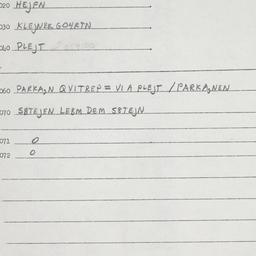 020 HEJEN
030 KLEJNER GOURTN
040 PLEJT
060 PARKA,N QVITREP = VI A PLEJT / PARKA,NEN
070 S8TEJEN LEBM DEM S8TEJN
071 0
072 0